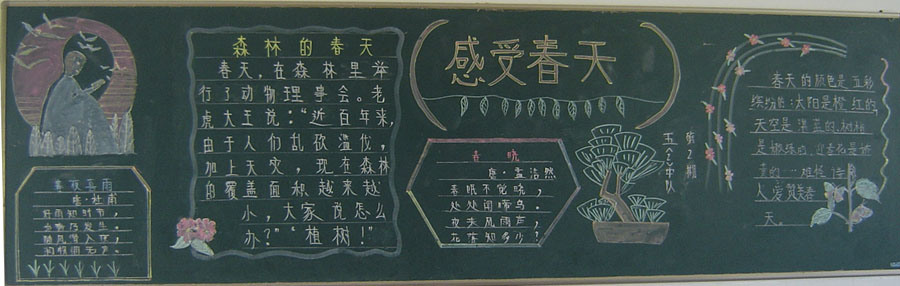 春夜喜雨
唐·杜甫
好雨知时节，
当春乃发生。
随风潜入夜，
润物细无声。
森林的春天
春天，在森林里举
行了动物理事会。老
虎大王说：“近百年来，
由于人们乱砍滥伐，
加上天灾，现在森林
的覆盖面积越来越
小，大家说怎么
办？”“植树！”
感受春天
春晓
唐·孟浩然
春眠不觉晓，
处处闻啼鸟。
夜来风雨声，
花落知多少？
第2期
五(2)中队
春天的颜色是五彩
缤纷的：太阳是橙红的，
天空是湛蓝的，树林
是嫩绿的，迎春花是
黄的
人
春
天。